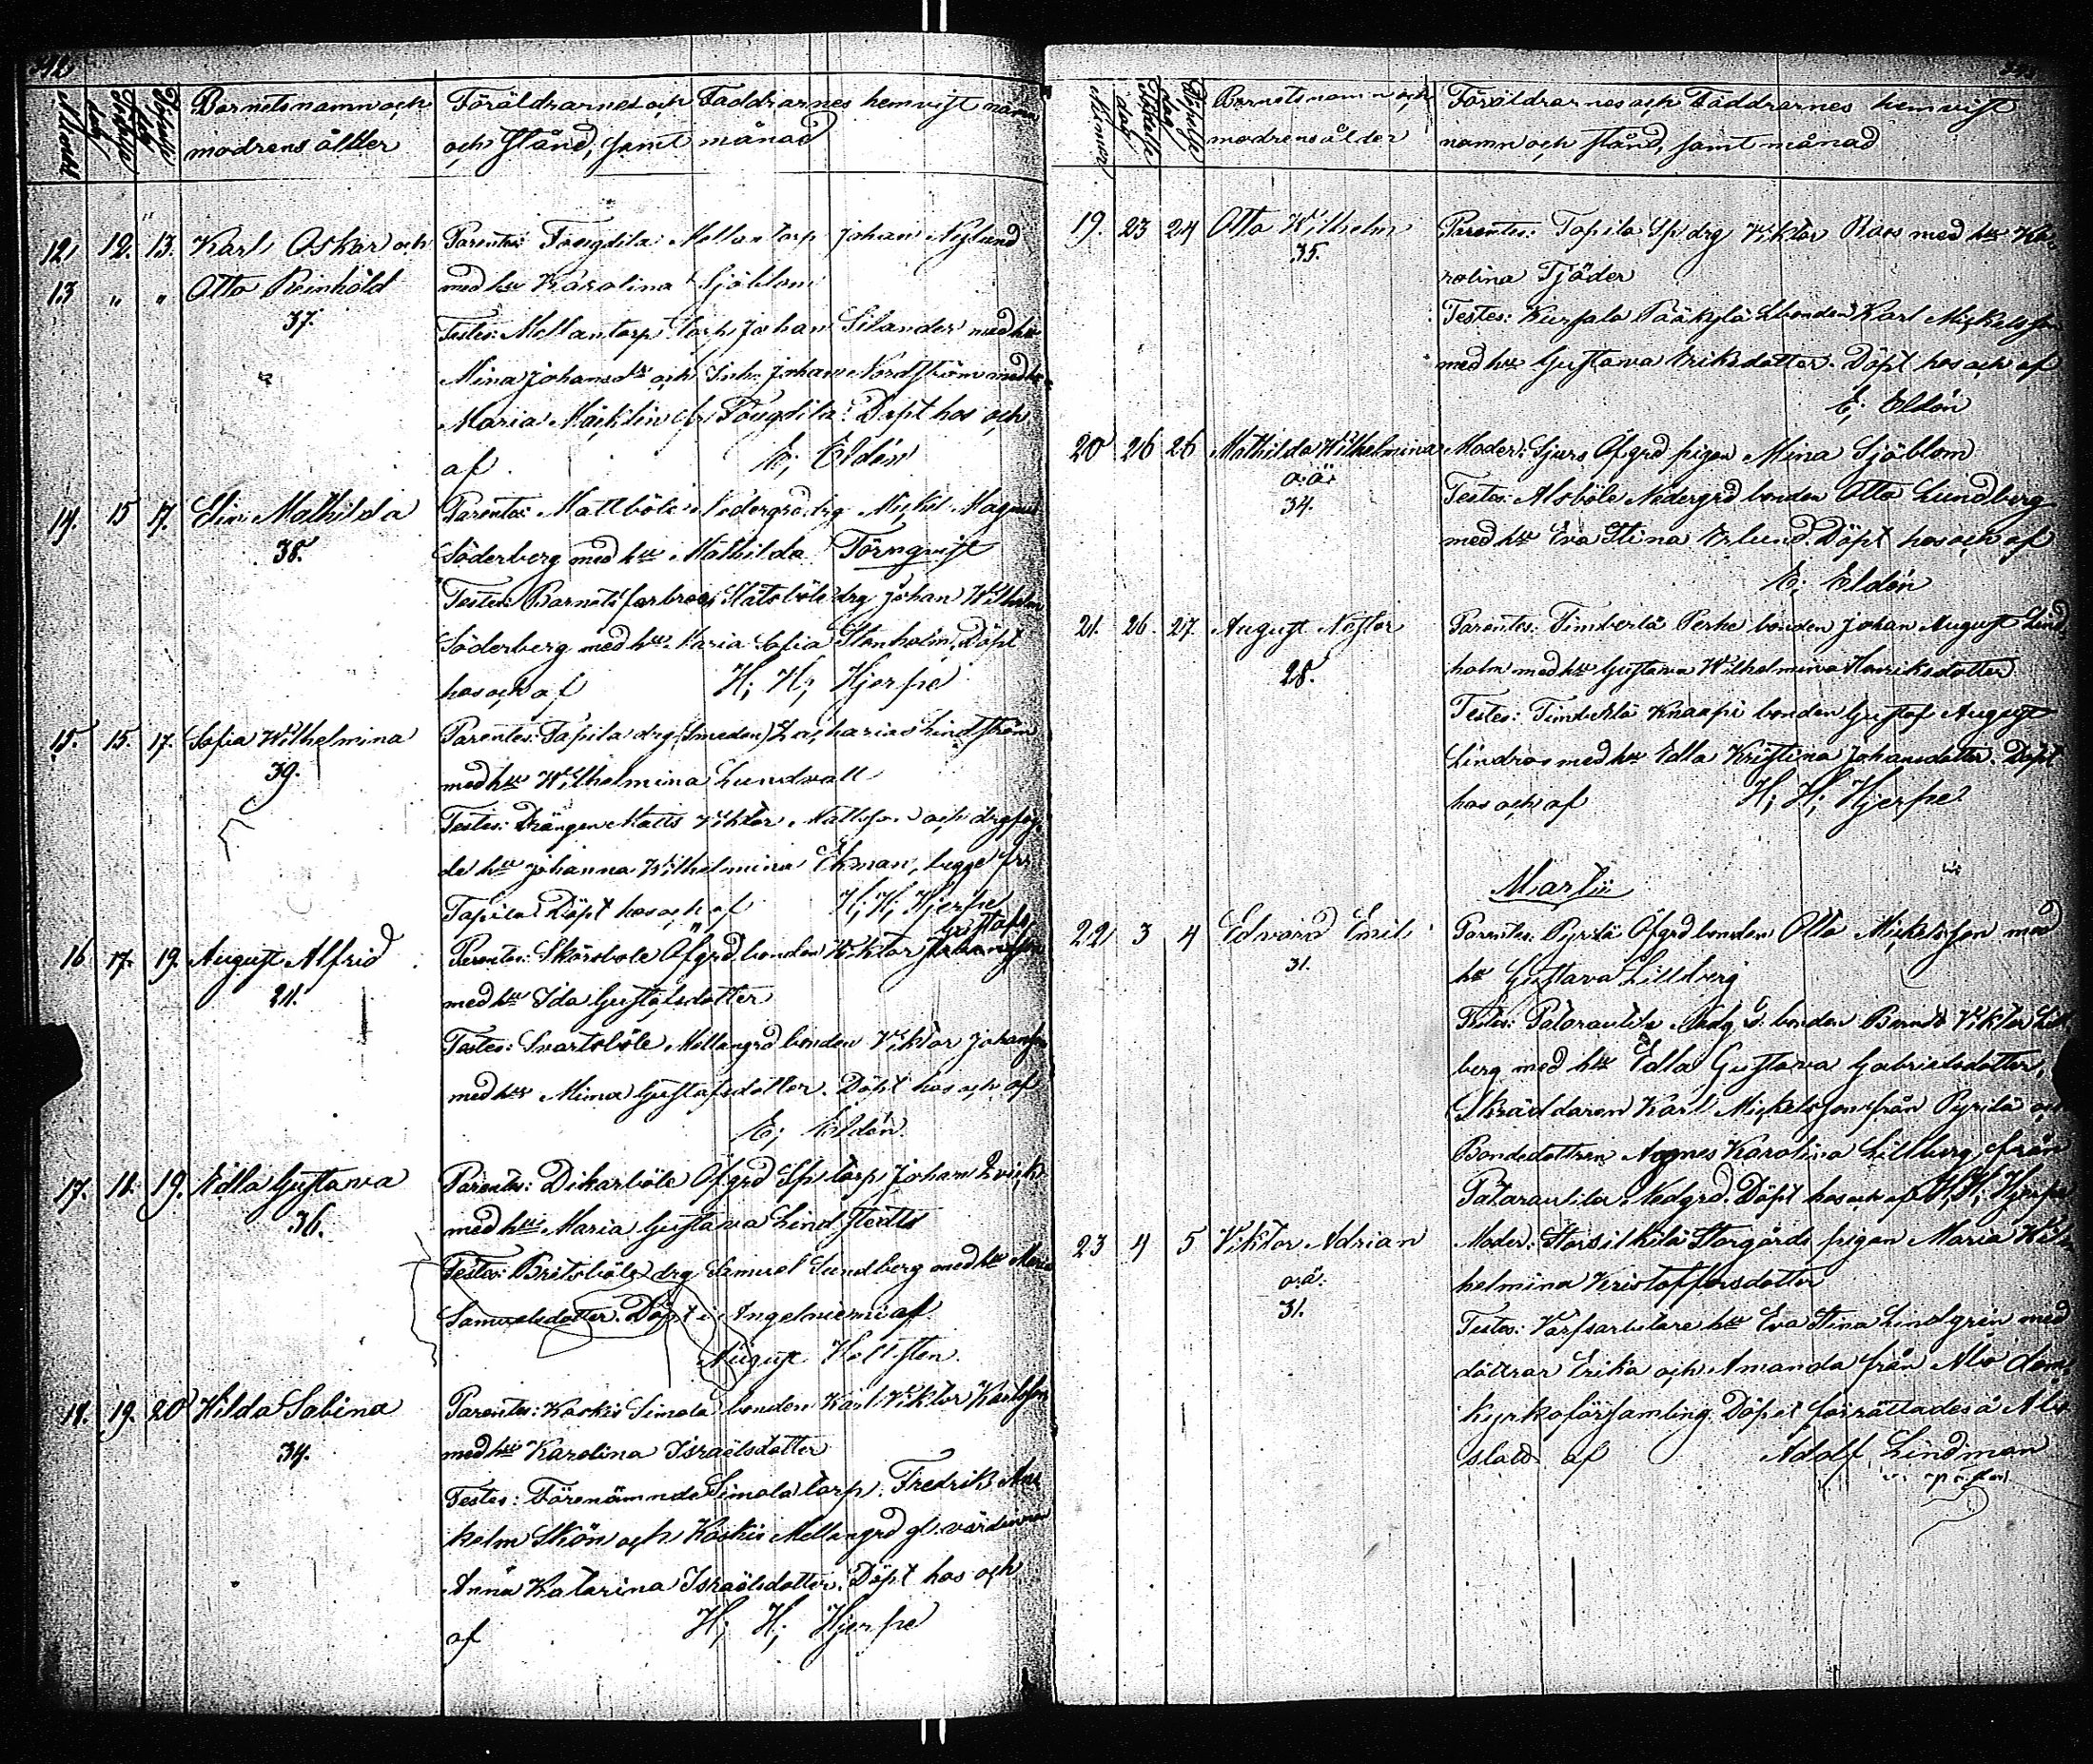 Nummer
Födelse dag
Döpelse dag
Barnets namn och
modrens ålder
Föräldrarnes och Faddrarnes hemvist namn
och stånd, samt månad
12. 12. 13. Karl Oskar och
13 " " Otto Reinhold
37.
Parentes: Tougdila Mellantorp Johan Nylund
med hu Karolina Sjöblom
Testes: Mellantorp torp Johan Silander med hu
Mina Johansdr och Inh. Johan Nordström med hu
Maria Mäcklin fr Tougdila. Döpt hos och
af E; Eldén
14. 15 17. Elin Mathilda
38.
Parentes: Mattböle Nedergrd drg Mickel Magnus
Söderberg med hu Mathilda Törnquist
Testes: Barnets farbror, Slätsböle drg Johan Wilhelm
Söderberg med hu Maria Sofia Stenholm. Döpt
hos och af H; H; Hjerpe
15. 15. 17. Sofia Wilhelmina
39.
Parentes: Tapila drg (Smeden) Zacharias Lindström
med hu Wilhelmina Lundvall
Testes: Drängen Matts Viktor Mattsson och drg
de hu Johanna Wilhelmina Ekman, begge fr
Tapila. Döpt hos och af H; H; Hjerpe
16 17. 19. August Alfrid
24.
Gustafs
Parentes: Skärsbole Öfgrd bonden Viktor
med hu Ida Gustafsdotter
Testes: Svartsböle Mellangrd bonden Viktor Johansson
med hu Mina Gustafsdotter. Döpt hos och af
E; Eldén.
17. 18. 19. Edla Gustava
36.
Parentes: Dikarböle Öfgrd Sp torp Johan Qvick
med hu Maria Gustava Lindstedts
Testes: Britsböle drg Samuel Sundberg med hu Maria
Samuelsdotter. Döpt i Angelniemi af
August Hellsten.
18. 19. 20 Hilda Sabina
34.
Parentes: Koskis Simola bonden Karl Viktor Karlsson
med hu Karolina Israelsdotter
Testes: Förenämnde Simola torp. Fredrik An
helm Skön och Koskis Mellangrd gl. värdinnan
Anna Katarina Israelsdotter. Döpt hos och
af H; H; Hjerpe
Nummer
Födelse dag
Döpelse dag
Barnets namn och
modrens ålder
Föräldrarnes och Faddrarnes hemvist
namn och stånd, samt månad
19. 23 24 Otto Wilhelm
35.
Parentes: Tapila Sp drg Viktor Roos med hu Ka-
rolina Tjäder
Testes: Kurjala Pääkylä Lbonden Karl Mickelsson
med hu Gustava Eriksdotter. Döpt hos och af
E; Eldén
20 26 26 Mathilda Wilhelmina
o.ä.
34.
Moder: Sjurs Öfgrd pigan Mina Sjöblom
Testes: Alsböle Nedergrd bonden Otto Lundberg
med hu Eva Stina Erlund. Döpt hos och af
E; Eldén
21. 26. 27. August Nestor
28.
Parentes: Timberlä Perhe bonden Johan August Lind
holm med hu Gustava Wilhelmina Henriksdotter
Testes: Knaapi bonden Gustaf August
Lindros med hu Edla Kristina Johansdotter. Döpt
hos och af H; H; Hjerpe
Martii
22 3 4 Edvard Emil
31.
Parentes: Pyrilä Öfgrd bonden Otto Mickelsson med
hu Gustava Lillberg
Testes: Patarautila Nedg. bonden Berndt Viktor Lill
berg med hu Edla Gustava Gabrielsdotter,
Skräddaren Karl Mickelsson från Pyrilä och
Bondedottren Agnes Karolina Lillberg från
Patarautila Nedgrd. Döpt hos och af H; H; Hjerpe
23 4 5 Viktor Adrian
o.ä.
31.
Moder: Storsilkilä Storgårds pigan Maria Wil
helmina Kristoffersdotter
Testes: Varfsarbetare hu Eva Stina Lindgrén med
döttrar Erika och Amanda från Åbo dom
kyrkoförsamling. Döpet förrättades å Åbo
stad af Adolf Lindman
v. pastor